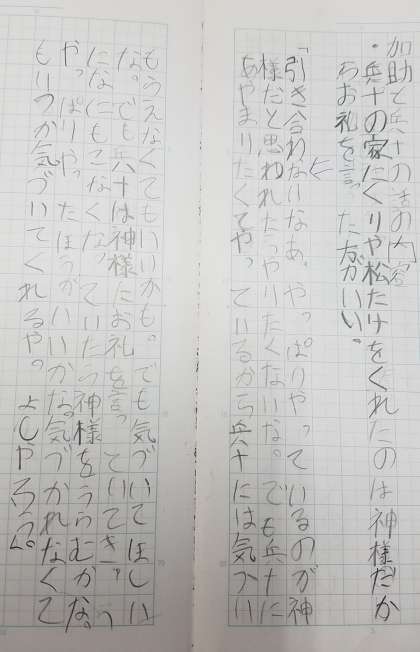 加助と兵十の話の内容
・兵十の家にくりや松たけをくれたのは神様だか
らお礼を言った方がいい。
「引き合わないなあ。やっぱりやっているのが神
様だと思われたらやりたくないな。でも兵十に
あやまりたくてやっているから兵十には気づい
てほしい
もうえなくてもいいかも。でも気づいてほしい
な。でも兵十は神様にお礼を言っていてきっ
になにもこなくなっていたら神様をうらむかな。
やっぱりやったほうがいいかな。気づかれなくて
もいつか気づいてくれるや。よしやろう」。